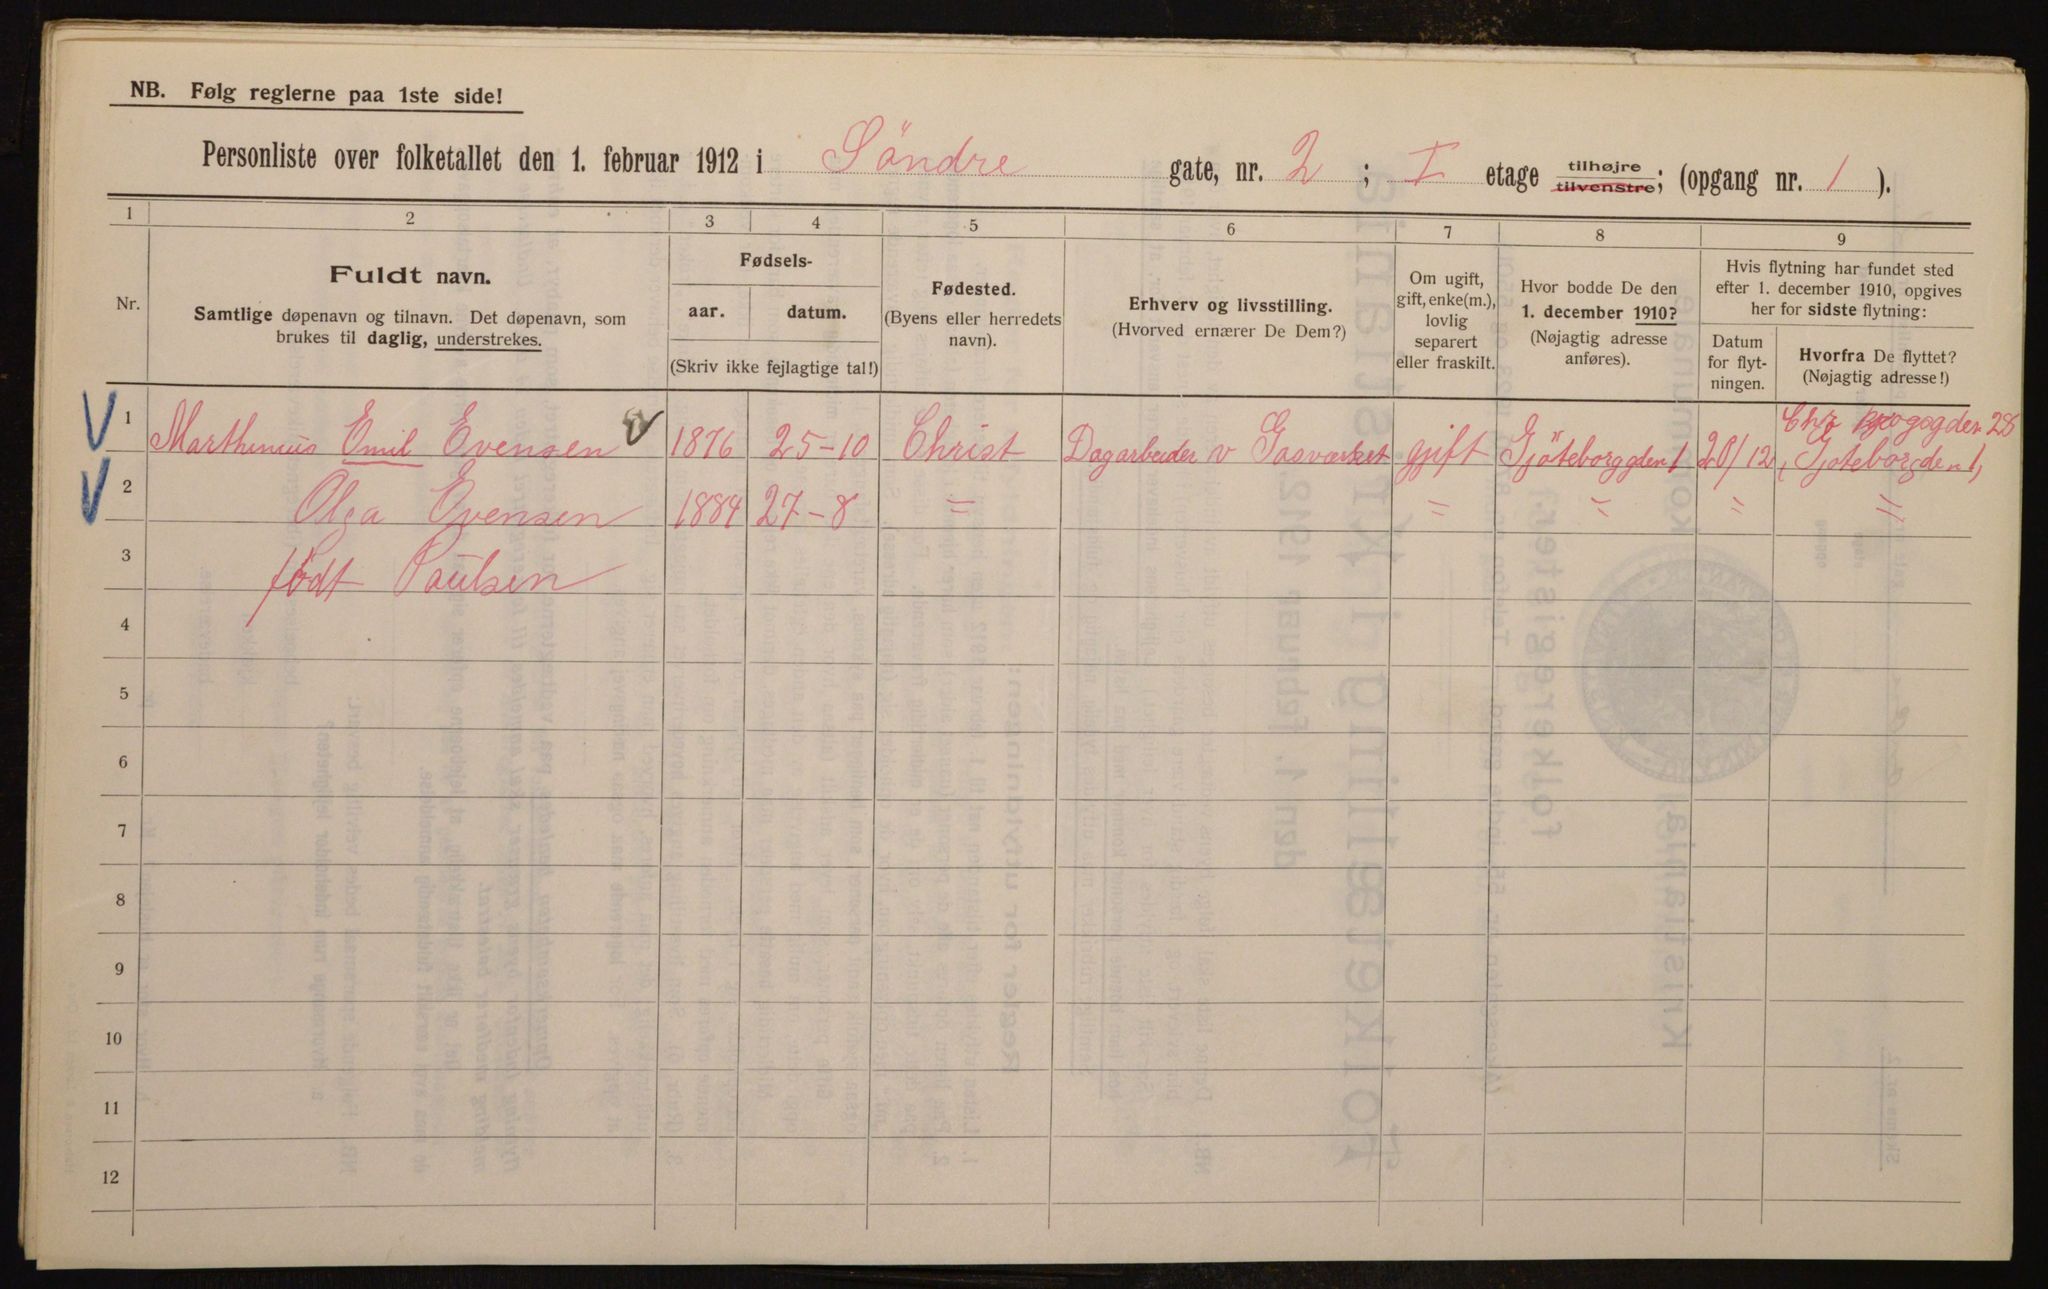 NB. Følg reglerne paa 1ste side!
Personliste over folketallet den 1. februar 1912 i Söndre gate, nr. 2 ; I etage tilhøjre tilvenstre; (opgang nr. 1 ).
1 2 3 4 5 6 7 8 9
Nr.
Fuldt navn.
Samtlige døpenavn og tilnavn. Det døpenavn, som
brukes til daglig, understrekes.
Fødsels-
aar. datum.
(Skriv ikke fejlagtige tal!)
Fødested.
(Byens eller herredets
navn).
Erhverv og livsstilling.
(Hvorved ernærer De Dem?)
Om ugift,
gift, enke(m.),
lovlig
separert
eller fraskilt.
Hvor bodde De den
1. december 1910?
(Nøjagtig adresse
anføres).
Hvis flytning har fundet sted
efter 1. december 1910, opgives
her for sidste flytning:
Datum
for flyt-
ningen.
Hvorfra De flyttet?
(Nøjagtig adresse!)
1 Marthinius Emil Evensen 1876 25-10 Christ Dagarbeider v Gasværket gift Gjöteborggden 1 20/12 gden 28
Gjöteborgden 1
2 Olga Evensen 1884 27-8 = = = = =
3 født Paulsen
4
5
6
7
8
9
10
11
12